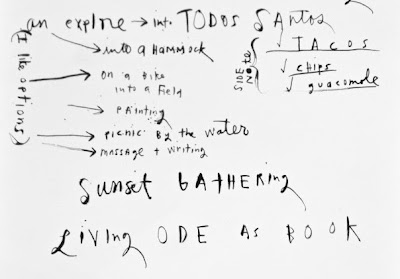 an explore → into TODOS SANTOS
(I like options)
into a HAMMOCK
on a Bike
into a field
PAINTING
picnic by the water
massage + writing
SIDE NOTE
TACOS
√ CHIPS
√ guacomole
Sunset GATHERING
LIVING ODE AS BOOK